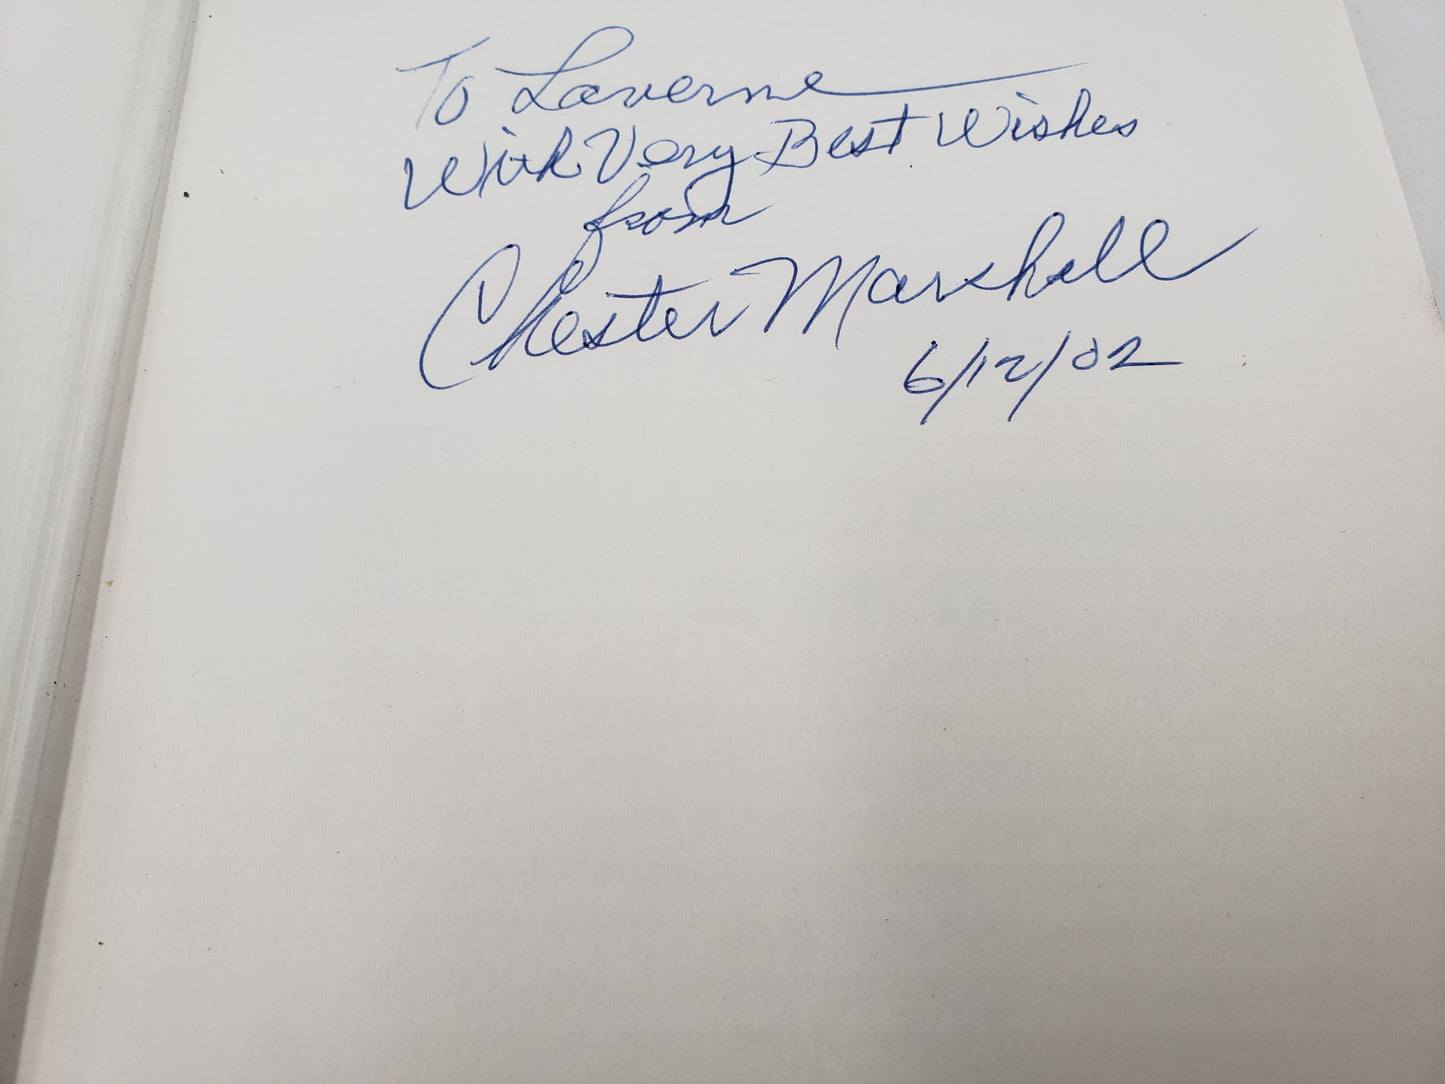 To Laverne
With Very Best Wishes
from
Chester Marshall
6/12/02